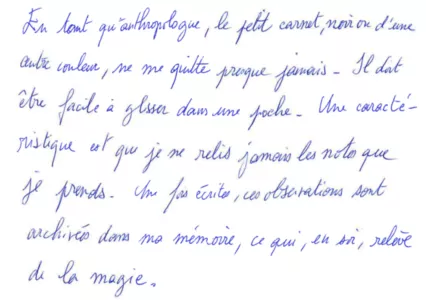 En tant qu'anthropologue, le petit carnet, noir ou d'une
autre couleur, ne me quitte presque jamais. Il doit
être facile à glisser dans une poche. Une caracté-
ristique est que je ne relis jamais les notes que
je prends. Une fois écrites, ces observations sont
archivées dans ma mémoire, ce qui, en soi, relève
de la magie.